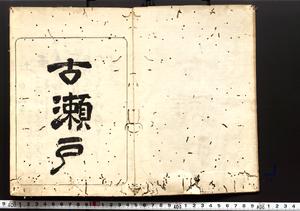 古瀬戸